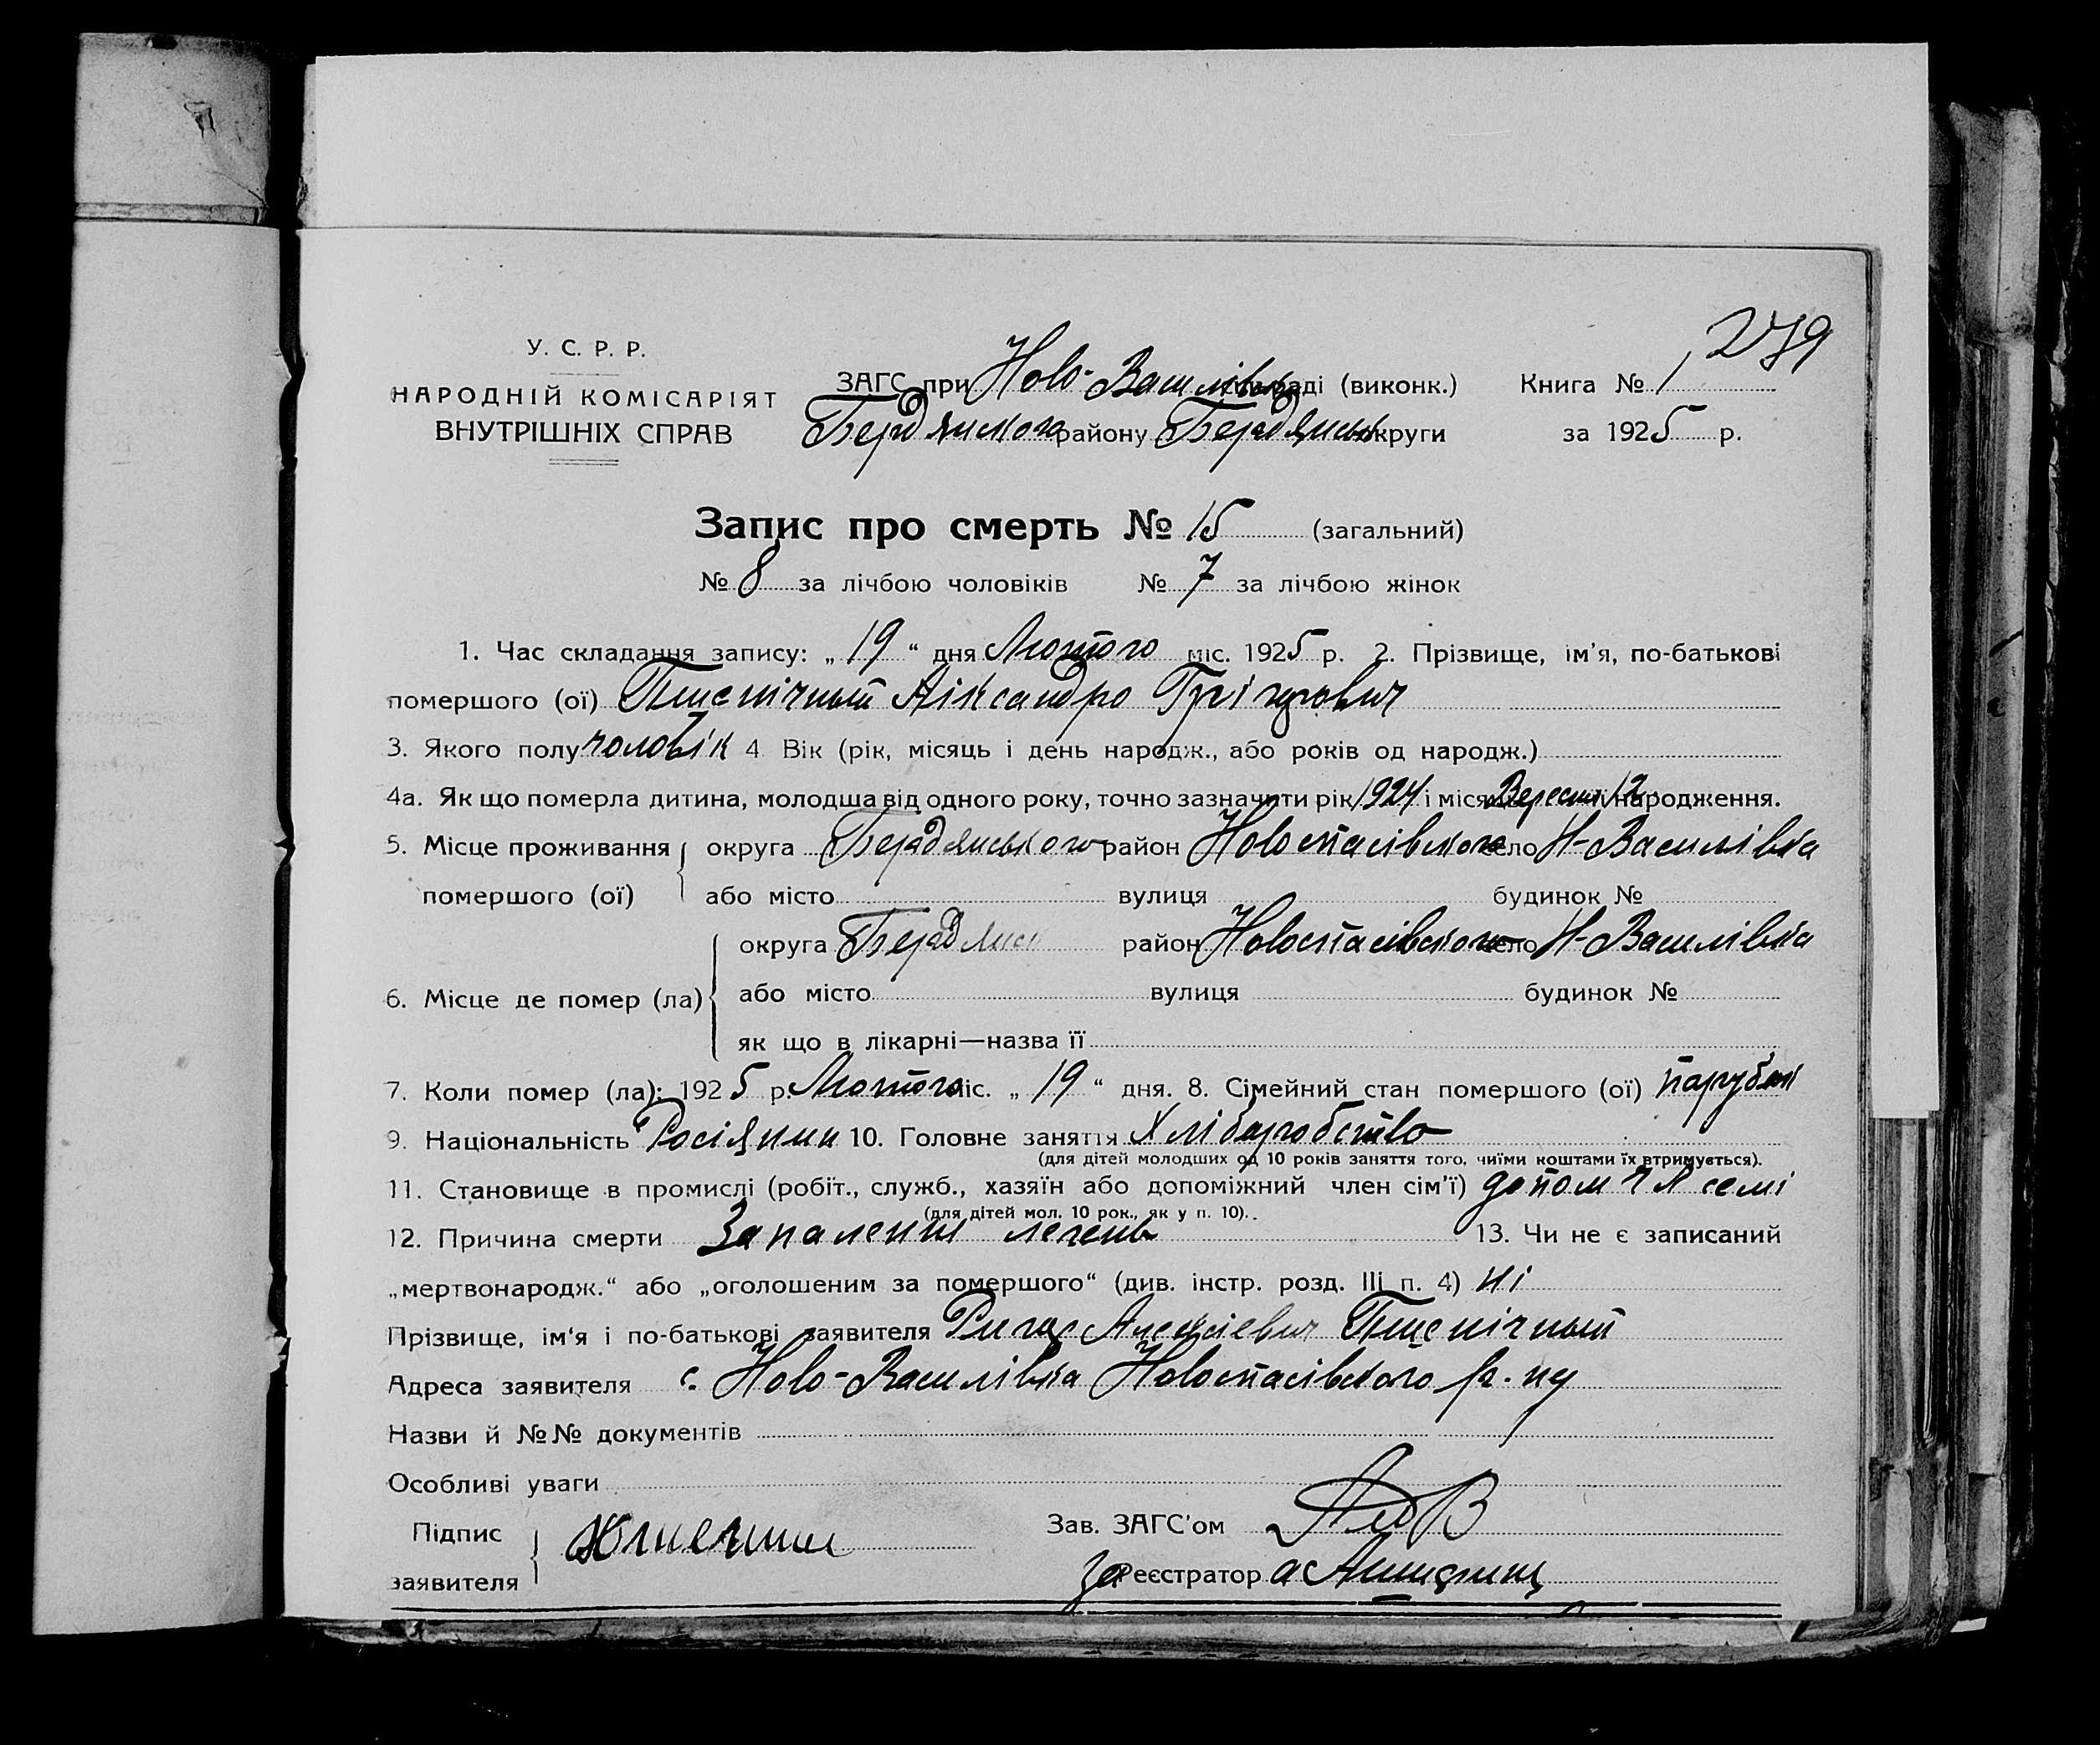 279
У. С. Р. Р.
НАРОДНІЙ КОМІСАРІЯТ
ВНУТРІШНІХ СПРАВ
ЗАГС при Ново-Василівск раді (виконк.) Книга № 1
Бердянского району Бердянськ округи за 1925 р.
Запис про смерть № 15 (загальний)
№ 8 за лічбою чоловіків № 7 за лічбою жінок
1. Час складання запису: „19“ дня Лютого міс. 1925 р. 2. Прізвище, ім’я, по-батькові
помершого (ої) Пшенічный Аіксандро Грігорович
3. Якого полу чоловік 4 Вік (рік, місяць і день народж., або років од народж.)
4а. Як що померла дитина, молодша від одного року, точно зазначити рік 1924 і місяць Вересня 12 народження.
5. Місце проживання округа Бердянського район Новоспасівского село Н-Василівка
помершого (ої) або місто вулиця будинок №
округа Бердянск район Новоспасівского село Н-Василівка
6. Місце де помер (ла) або місто вулиця будинок №
як що в лікарні—назва її
7. Коли помер (ла): 1925 р. Лютого міс. „19“ дня. 8. Сімейний стан помершого (ої) парубок
9. Національність Росіянин 10. Головне заняття Хліборобство
(для дітей молодших од 10 років заняття того, чиїми коштами їх втримується).
11. Становище в промислі (робіт., служб., хазяїн або допоміжний член сім’ї) допом чл семі
(для дітей мол. 10 рок., як у п. 10).
12. Причина смерти Запаления легень 13. Чи не є записаний
„мертвонародж.“ або „оголошеним за помершого“ (див. інстр. розд. III п. 4) ні
Прізвище, ім‘я і по-батькові заявителя Алексіевич Пшенічный
Адреса заявителя с. Ново-Василівка Новоспасівского р-ну
Назви й №№ документів
Особливі уваги
Підпис
заявителя
Зав. ЗАГС’ом
За Реєстратор а